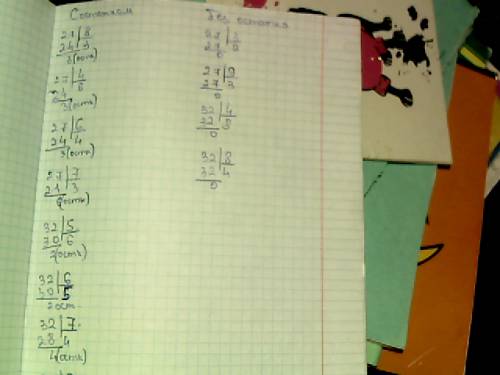 С остатком
27|8
24|3
3(ост)
27|4
24|6
3(ост)
27|6
24|4
3(ост)
27|7
21|3
6(ост)
32|5
30|6
2(ост)
32|6
30|5
2 ост
32|7
28|4
4(ост)
Без остатка
27|3
27|9
0
27|9
27|3
0
32|4
32|8
0
32|8
32|4
0